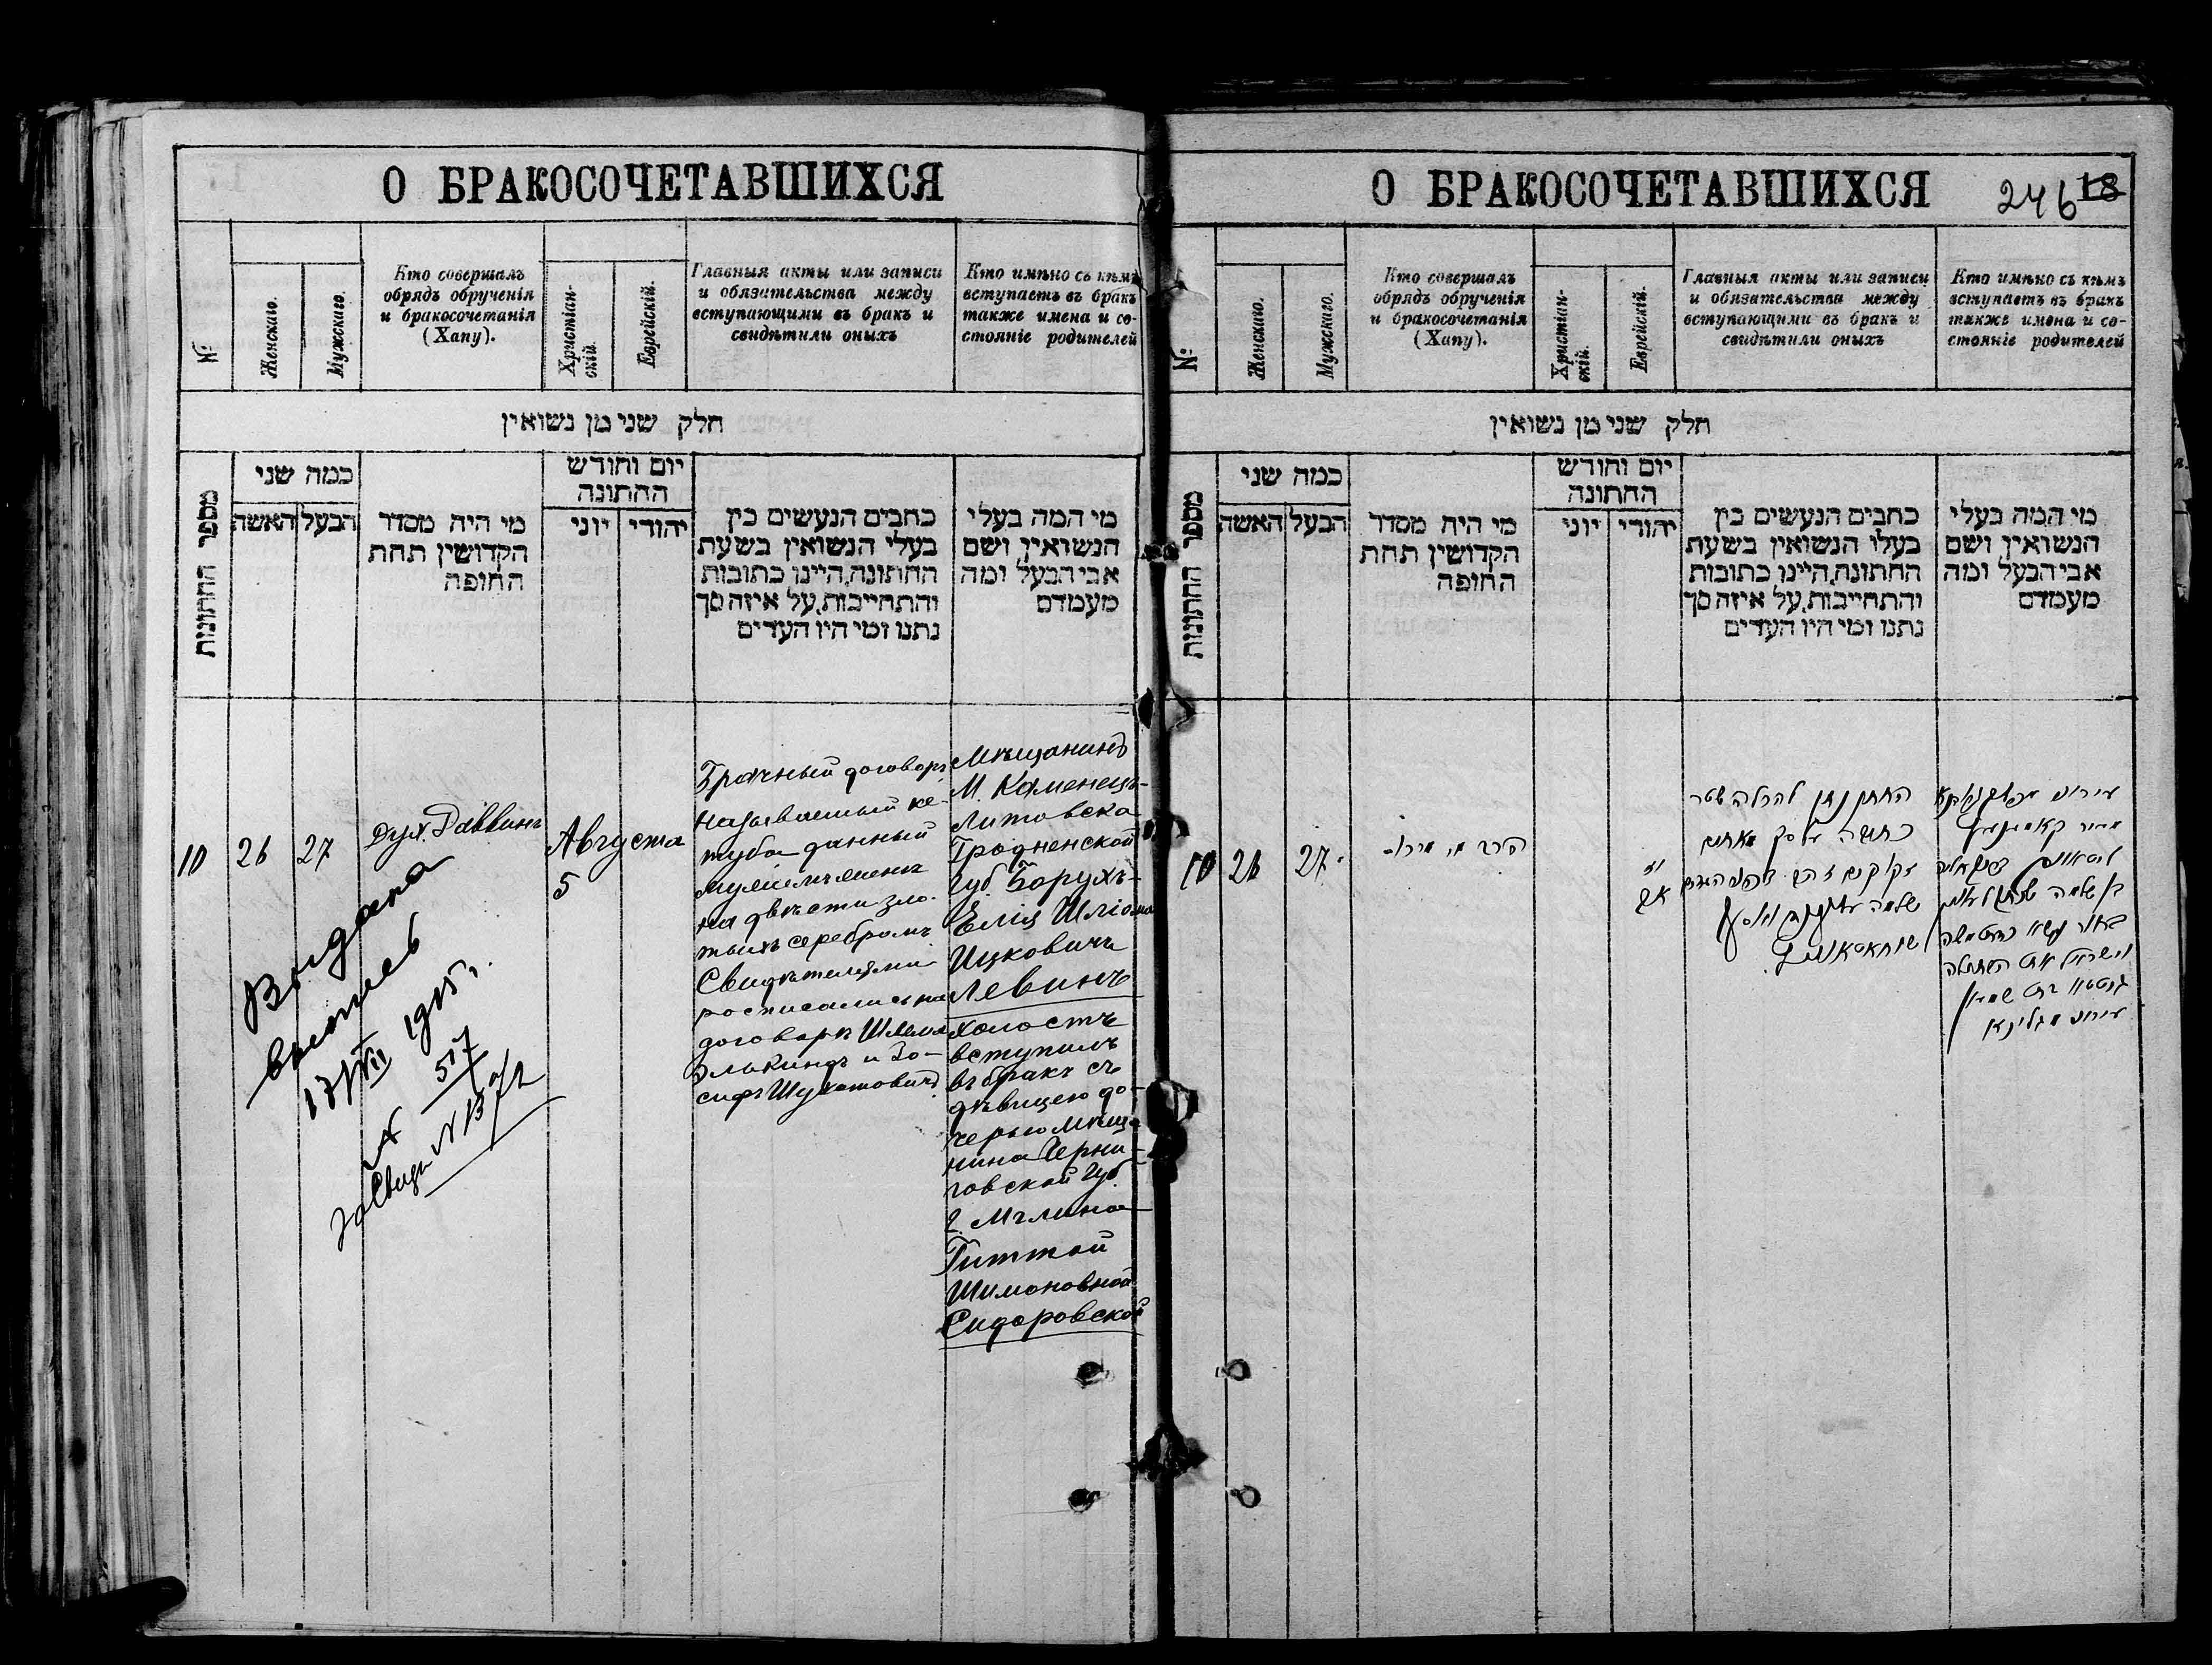 О БРАКОСОЧЕТАВШИХСЯ
№
Женскаго.
Мужскаго.
Кто совершалъ
обрядъ обрученія
и бракосочетанія
(Хапу).
Христіан-
скій.
Еврейскій.
Главныя акты или записи
и обязательства между
вступающими въ бракъ и
свидѣтили оныхъ
Кто имѣно съ кѣмъ
вступаетъ въ бракъ
также имена и со-
стояніе родителей
חלק שני מן נשואין
מספר החתונות
כמה שני
האשה
הבעל
מי היה מסדר
הקדושין תחת
החופה
יום וחודש
החתונה
יוני
יהודי
כתבים הנעשים בין
בעלי הנשואין בשעת
החתונה, היינו כתובות
והתחייבות, על איזה סך
נתנו ומי היו העדים
מי המה בעלי
הנשואין ושם
אבי הבעל ומה
מעמדם
10
26
27
Дух. Раввинъ
Августа
5
Брачный договоръ
называемый ке-
туба данный
мужемъ женѣ
на двѣсти зло-
тыхъ серебромъ
Свидѣтелями
росписались на
договорѣ Шлема
Элькиндъ и Іо-
сифъ Шухатовичъ
Мѣщанинъ
М. Каменецъ-
Литовска
Гродненской
Губ. Борухъ-
Елія Шліома
Ицковичъ
Левинъ
холостъ
вступилъ
въ бракъ съ
дѣвицею до-
черью мѣща-
нина Черни-
говской Губ.
г. Мглина
Гиттой
Шимоновной
Сидоровской
Выдана
выпись
17/VII 1915 г.
№ 517
О БРАКОСОЧЕТАВШИХСЯ
246 18
№
Женскаго.
Мужскаго.
Кто совершалъ
обрядъ обрученія
и бракосочетанія
(Хапу).
Христіан-
скій.
Еврейскій.
Главныя акты или записи
и обязательства между
вступающими въ бракъ и
свидѣтили оныхъ
Кто имѣно съ кѣмъ
вступаетъ въ бракъ
также имена и со-
стояніе родителей
חלק שני מן נשואין
מספר החתונות
כמה שני
האשה
הבעל
מי היה מסדר
הקדושין תחת
החופה
יום וחודש
החתונה
יוני
יהודי
כתבים הנעשים בין
בעלי הנשואין בשעת
החתונה, היינו כתובות
והתחייבות, על איזה סך
נתנו ומי היו העדים
מי המה בעלי
הנשואין ושם
אבי הבעל ומה
מעמדם
10
26
27
החתן נתן להכלה שטר
כתובה על סך מאתים
זקוקים
שלמה